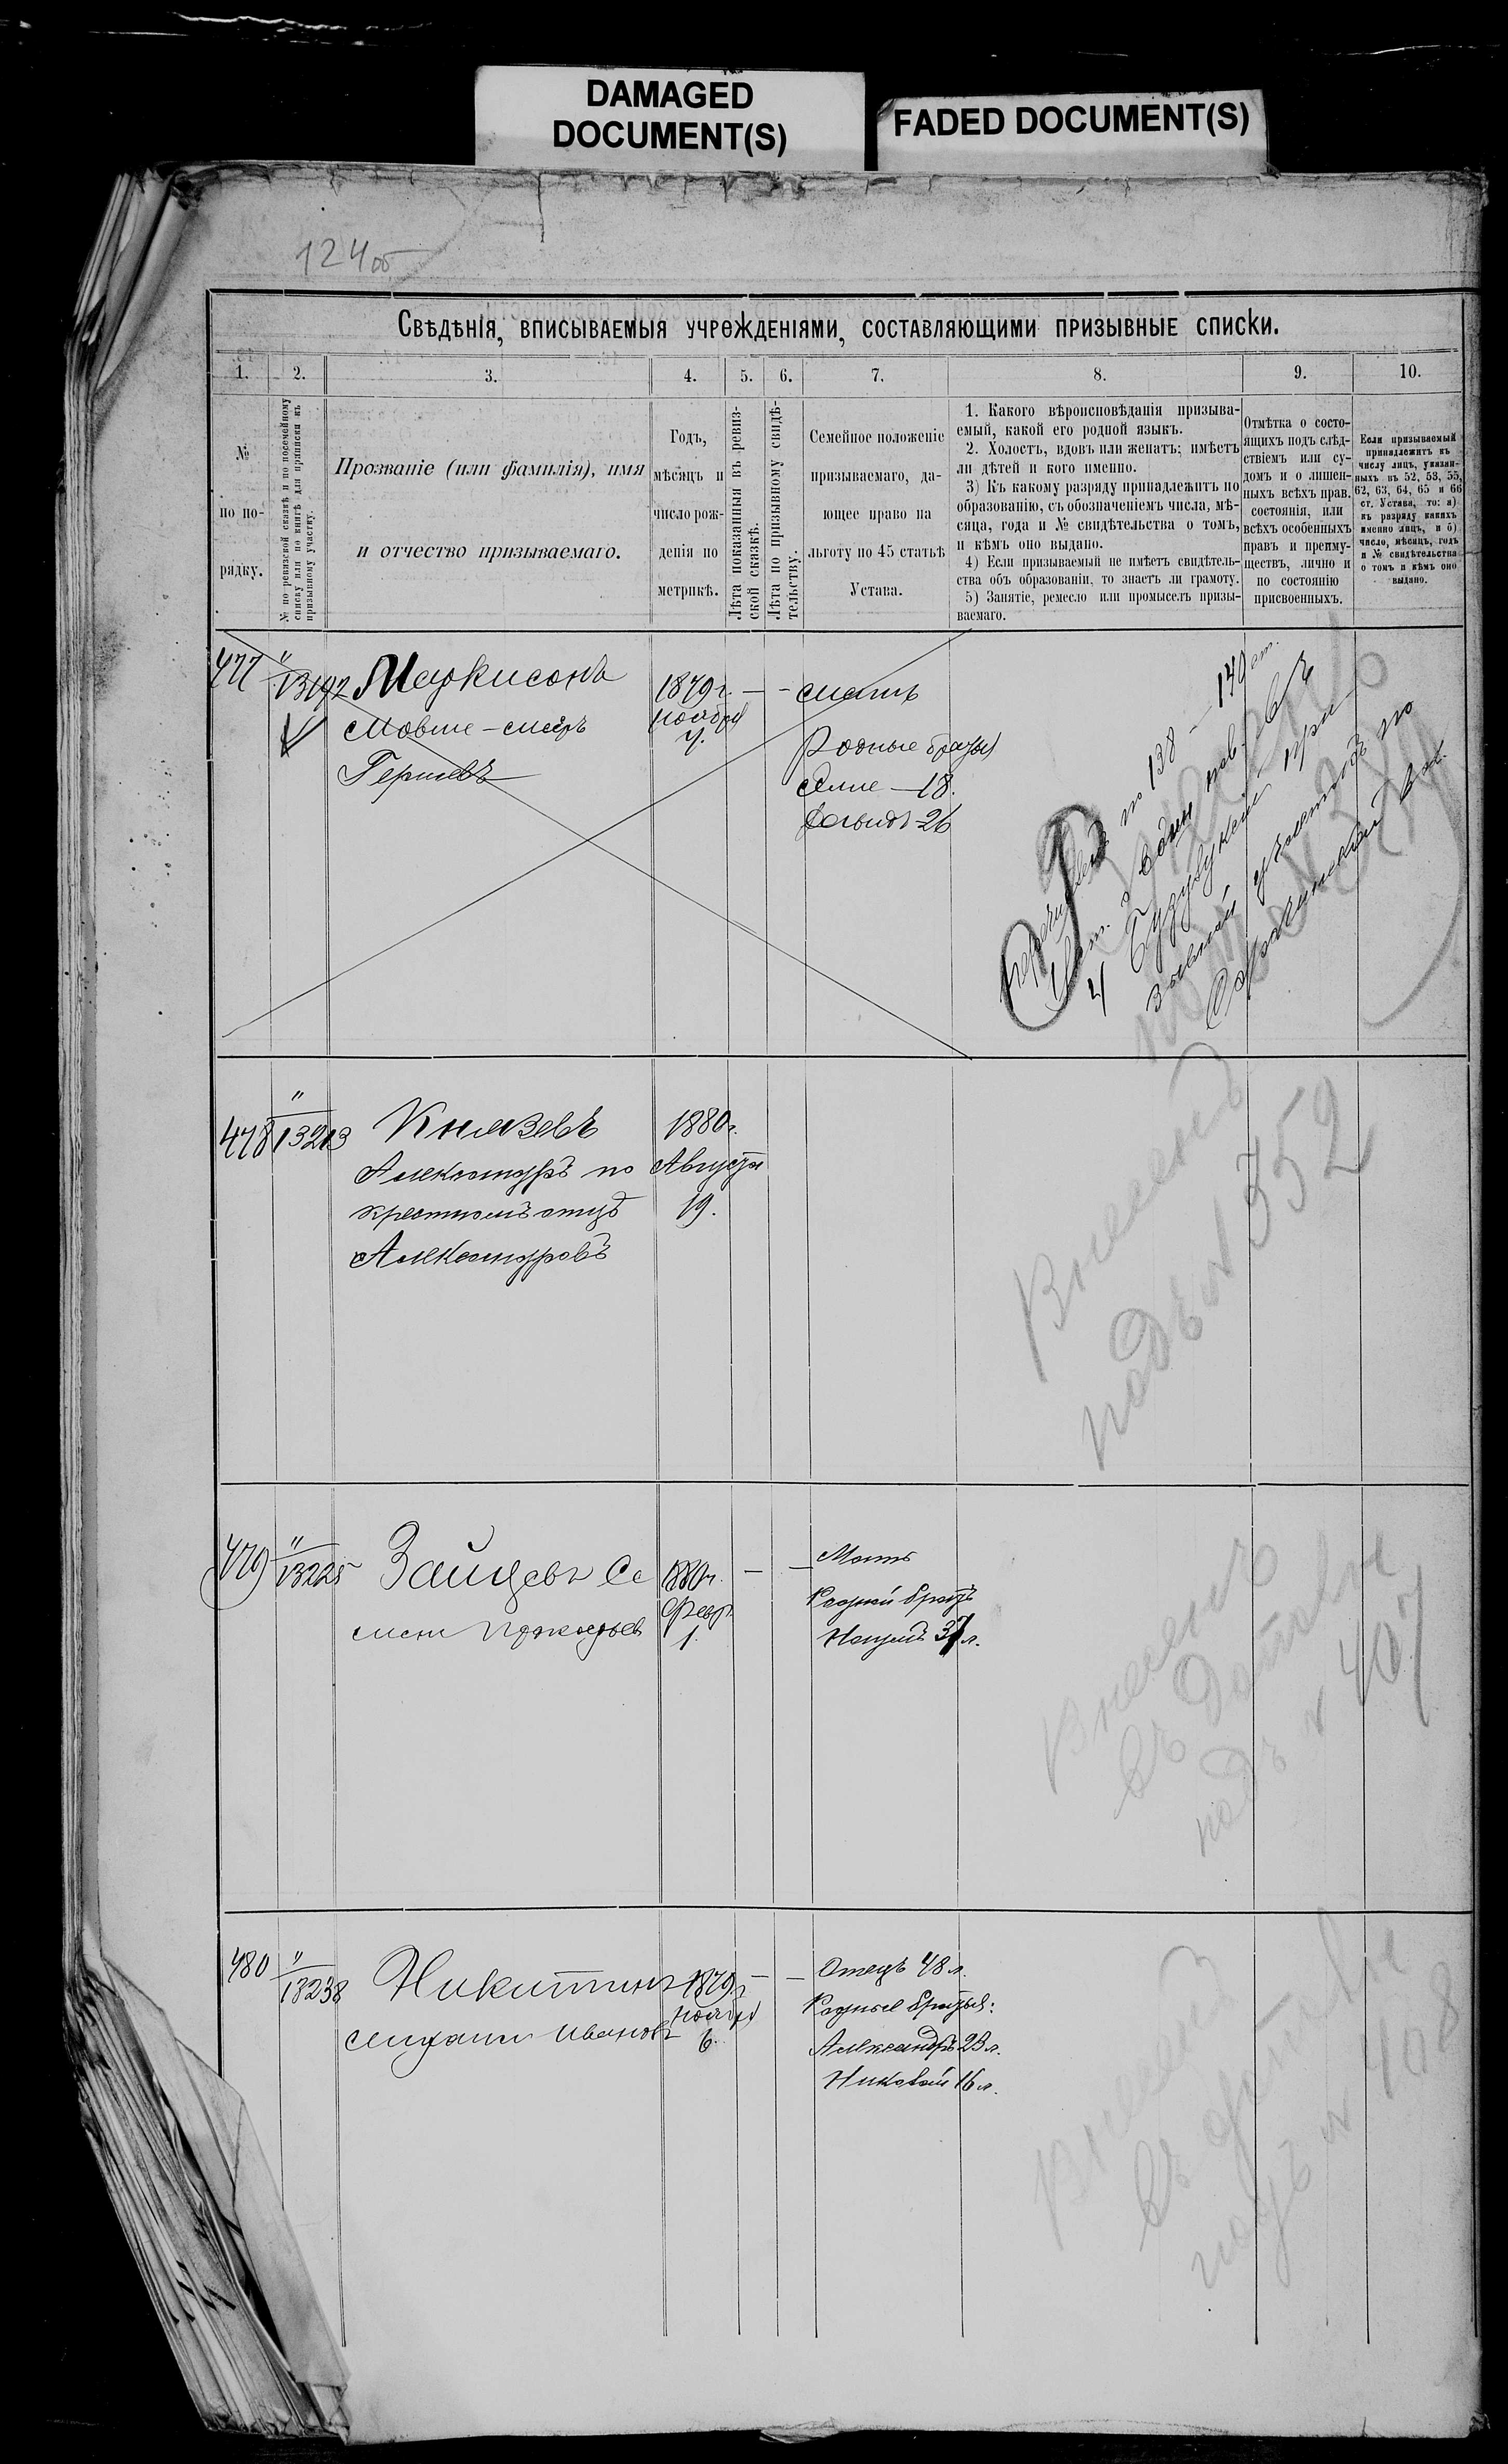 DAMAGED
DOCUMENT(S)
FADED DOCUMENT(S)
124об
Свѣдѣнія, вписываемыя учрежденіями, составляющими призывные списки.
1. 2. 3. 4. 5. 6. 7. 8. 9. 10.
№
по по-
рядку.
№ по ревизской сказкѣ и по посемейному
списку или по книгѣ для приписки къ
призывному участку.
Прозваніе (или фамилія), имя
и отчество призываемаго.
Годъ,
мѣсяцъ и
число рож-
денія по
метрикѣ.
Лѣта показанныя въ ревиз-
ской сказкѣ.
Лѣта по призывному свидѣ-
тельству.
Семейное положеніе
призываемаго, да-
ющее право на
льготу по 45 статьѣ
Устава.
1. Какого вѣроисповѣданія призыва-
емый, какой его родной языкъ.
2. Холостъ, вдовъ или женатъ; имѣетъ
ли дѣтей и кого именно.
3) Къ какому разряду принадлежитъ по
образованію, съ обозначеніемъ числа, мѣ-
сяца, года и № свидѣтельства о томъ,
и кѣмъ оно выдано.
4) Если призываемый не имѣетъ свидѣтель-
ства объ образованіи, то знаетъ ли грамоту.
5) Занятіе, ремесло или промыселъ призы-
ваемаго.
Отмѣтка о состо-
ящихъ подъ слѣд-
ствіемъ или су-
домъ и о лишен-
ныхъ всѣхъ прав.
состоянія, или
всѣхъ особенныхъ
правъ и преиму-
ществъ, лично и
по состоянію
присвоенныхъ.
Если призываемый
принадлежитъ къ
числу лицъ, указан-
ныхъ въ 52, 53, 55,
62, 63, 64, 65 и 66
ст. Устава, то: а)
къ разряду какихъ
именно лицъ, и б)
число, мѣсяцъ, годъ
и № свидѣтельства
о томъ и кѣмъ оно
выдано.
477 " 13192 Маркисонъ 1879 г. — - мать
Мовше-Меер ноября
Гершевъ
Родные братья
18.
26
по 138 — 149 ст.
478 " 13213 Князевъ 1880 г.
Александръ по Августа
крестномъ отцѣ 19.
Александровъ
Внесенъ
подъ № 352
479 " 13225 Зайцевъ Се 1880 г. — — Мать
мен Прокофьев Февр. Родной братъ
1. 37 л.
Внесенъ
въ
подъ № 407
480 " 13238 Никитинъ 1879 г. — — Отецъ 48 л.
Михаил Ивановъ ноября Родные братья:
6. Александръ 23 л.
Николай 16 л.
Внесенъ
въ
подъ № 408